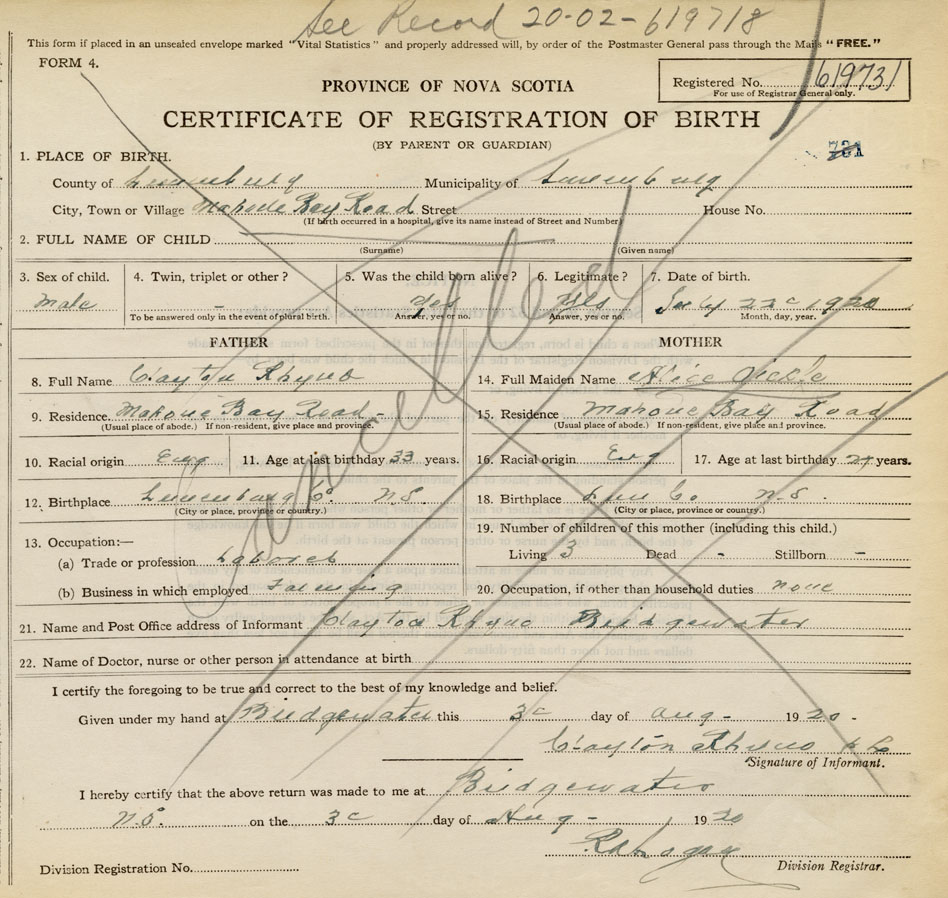 See Record 20-02-619718
This form if placed in an unsealed envelope marked "Vital Statistics" and properly addressed will, by order of the Postmaster General pass through the Mails "FREE."
FORM 4.
PROVINCE OF NOVA SCOTIA
Registered No. 619731
For use of Registrar General only.
CERTIFICATE OF REGISTRATION OF BIRTH
(BY PARENT OR GUARDIAN)
1. PLACE OF BIRTH.
County of Lunenburg Municipality of Lunenburg
City, Town or Village Mahone Bay Road Street House No.
(If birth occurred in a hospital, give its name instead of Street and Number)
2. FULL NAME OF CHILD
(Surname) (Given name)
3. Sex of child. 4. Twin, triplet or other? 5. Was the child born alive? 6. Legitimate? 7. Date of birth.
Male - Yes Yes July 22 1920
To be answered only in the event of plural birth. Answer, yes or no. Answer, yes or no. Month, day, year.
Cancelled
FATHER MOTHER
8. Full Name Clayton Rhyno 14. Full Maiden Name Alice
9. Residence. Mahone Bay Road - 15. Residence Mahone Bay Road
(Usual place of abode.) If non-resident, give place and province. (Usual place of abode.) If non-resident, give place and province.
10. Racial origin Eng 11. Age at last birthday 33 years. 16. Racial origin Eng 17. Age at last birthday years.
12. Birthplace Lunenburg Co. N.S. 18. Birthplace Lun Co N.S.
(City or place, province or country.) (City or place, province or country.)
13. Occupation:— 19. Number of children of this mother (including this child.)
(a) Trade or profession Laborer Living 3 Dead - Stillborn -
(b) Business in which employed Farming 20. Occupation, if other than household duties none
21. Name and Post Office address of Informant Clayton Rhyno Bridgewater
22. Name of Doctor, nurse or other person in attendance at birth
I certify the foregoing to be true and correct to the best of my knowledge and belief.
Given under my hand at Bridgewater this 3 day of Aug - 1920 -
Clayton Rhyno
Signature of Informant.
I hereby certify that the above return was made to me at Bridgewater
N.S. on the 3 day of Aug - 1920
Division Registration No. Division Registrar.